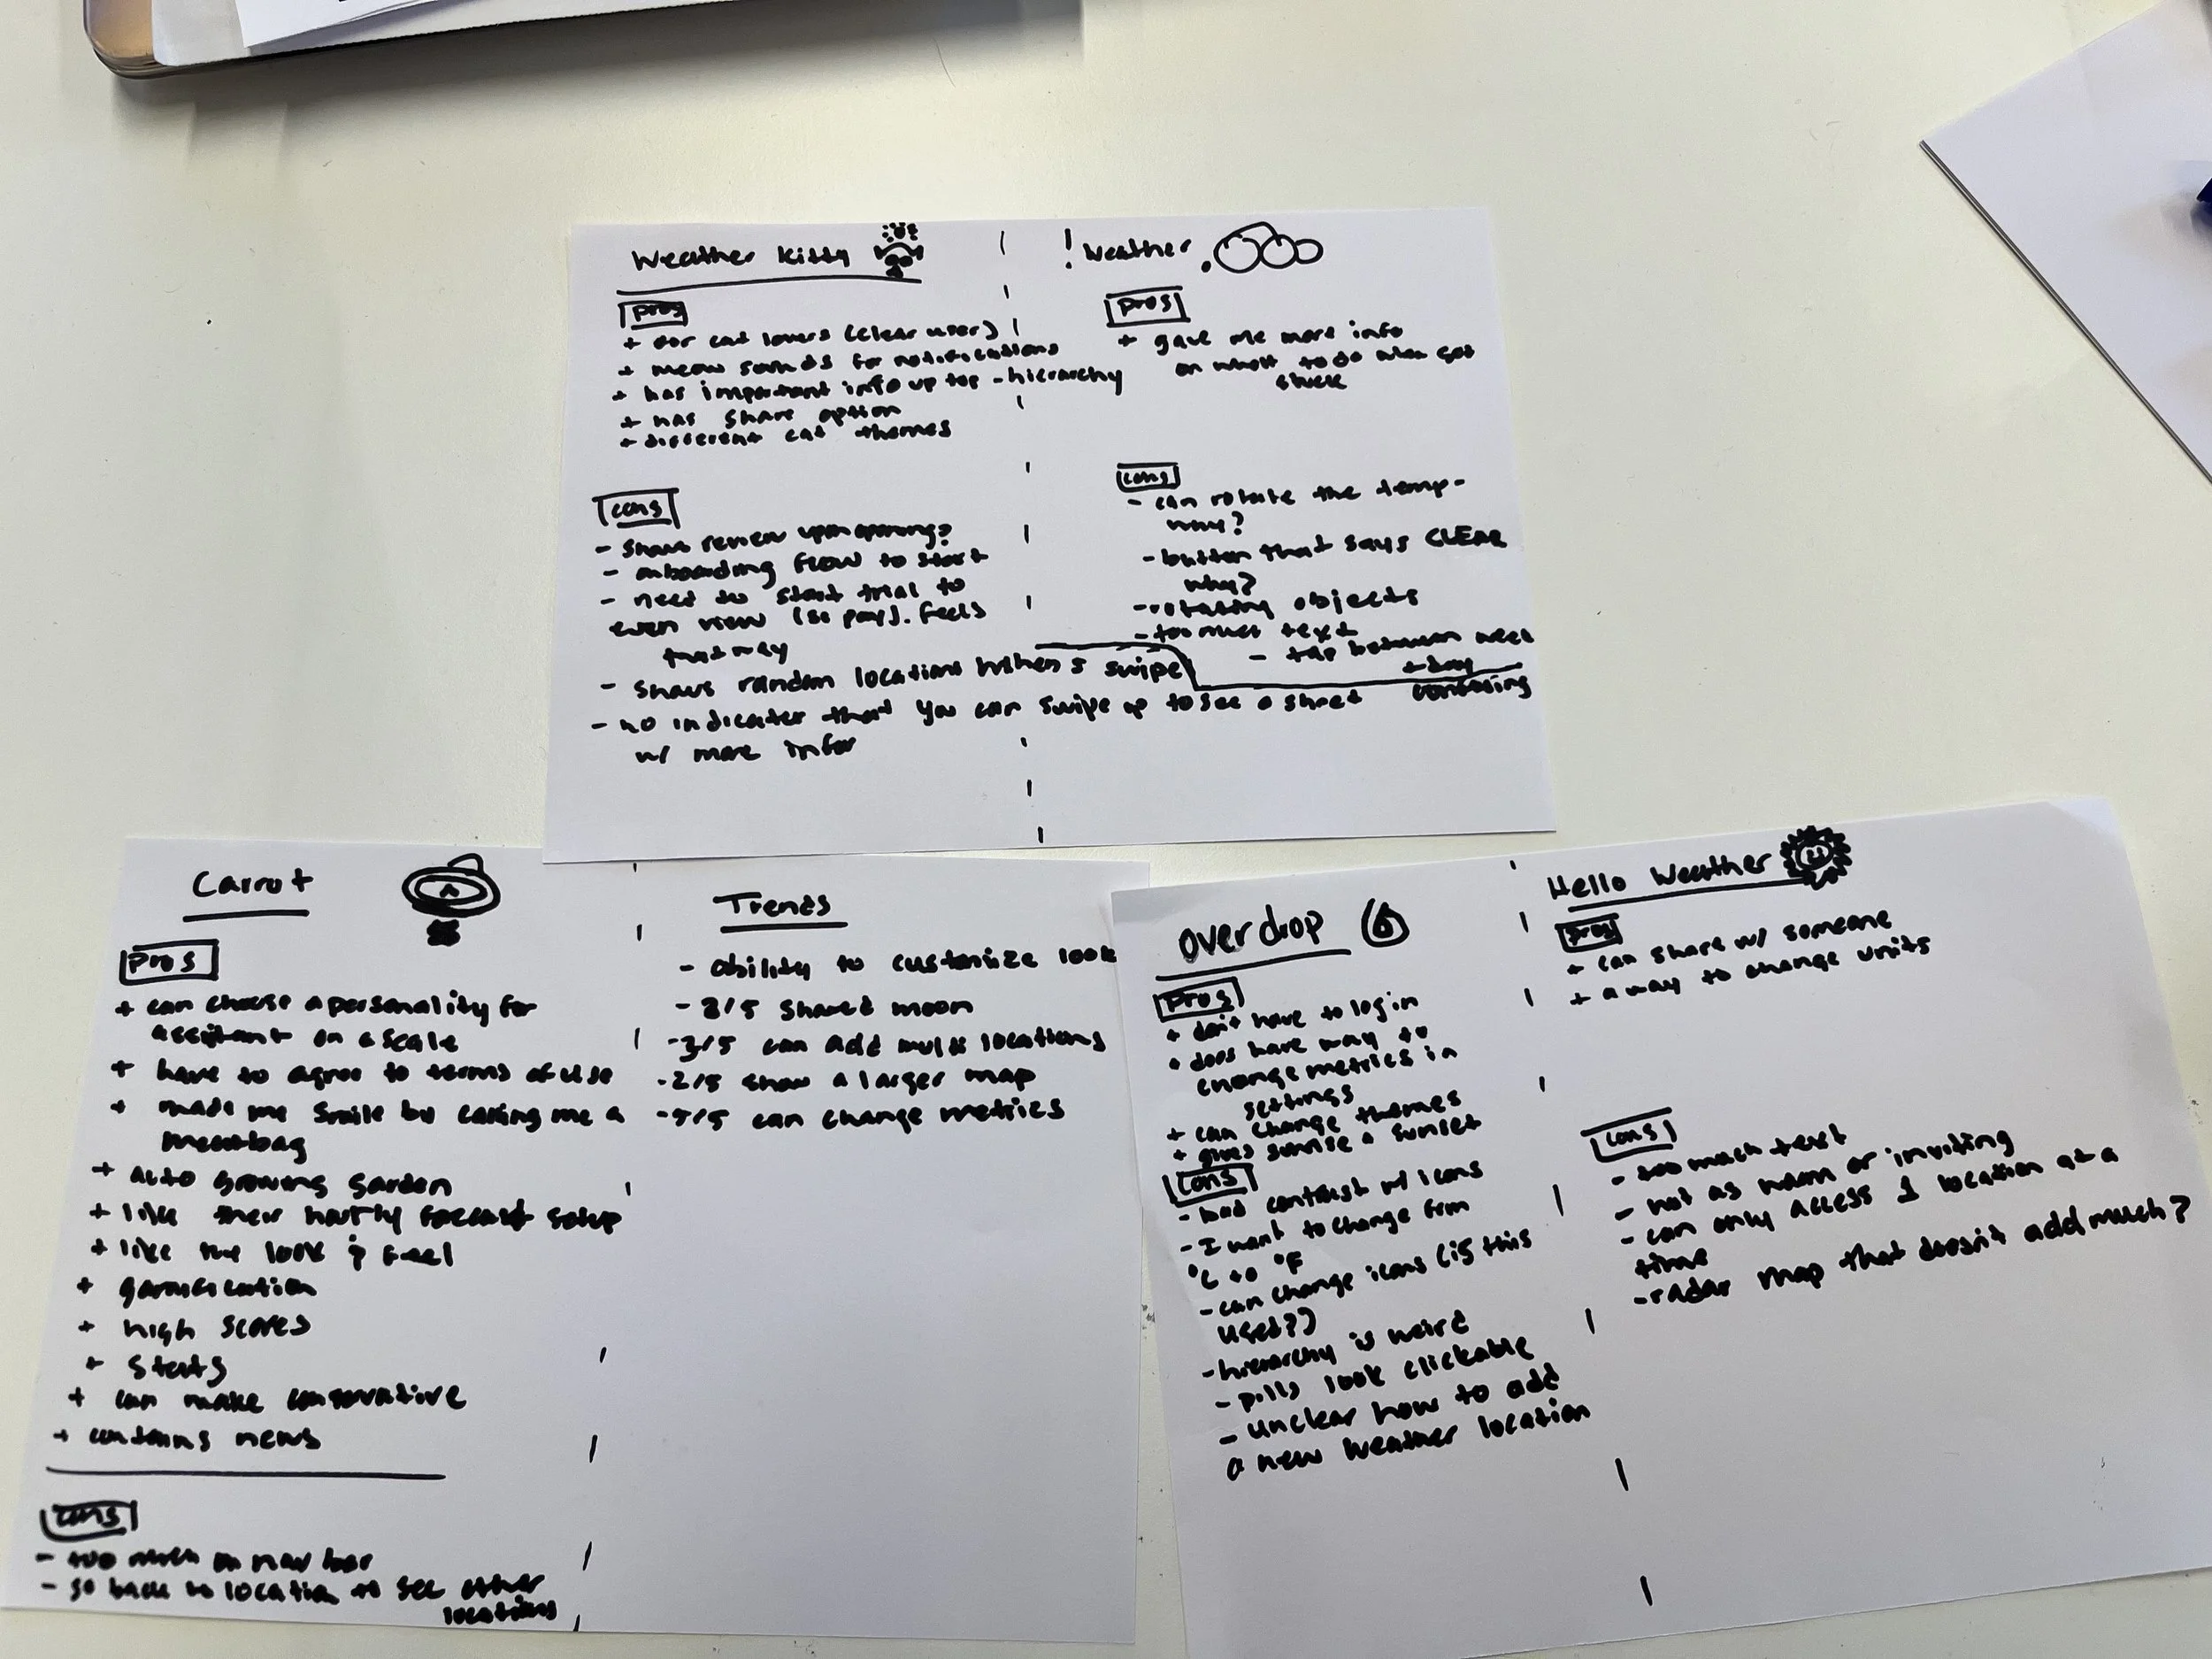 Weather Kitty
Pros
+ for cat lovers (clear user)
+ meow sounds for notifications
+ has important info up top - hierarchy
+ has share option
+ different cat themes
Cons
- shows review upon opening?
- onboarding flow to start
- need to start trial to
even view (so pay). Feels
that way
- shows random locations when I swipe
- no indicator that you can swipe up to see a sheet
w/ more infor
! Weather
Pros
+ gave me more info
on what to do when got
stuck
Cons
- can rotate the temp -
why?
- button that says CLEAR
why?
- rotating objects
- too much text
- tap between week
+ day
confusing
Carrot
Pros
+ can choose a personality for
assistant on a scale
+ have to agree to terms of use
+ made me smile by calling me a
meatbag
+ auto growing garden
+ like their hourly forecast setup
+ like the look & feel
+ gamification
+ high scores
+ stats
+ can make conservative
+ contains news
Cons
- too much on nav bar
- go back to location to see other
locations
Trends
- ability to customize look
- 2/5 shared moon
- 3/5 can add multi locations
- 2/5 show a larger map
- 5/5 can change metrics
overdrop
Pros
+ don't have to login
+ does have way to
change metrics in
settings
+ can change themes
+ gives sunrise & sunset
Cons
- bad contrast w/ icons
- I want to change from
°C to °F
- can change icons (is this
used?)
- hierarchy is weird
- pills look clickable
- unclear how to add
a new weather location
Hello Weather
Pros
+ can share w/ someone
+ a way to change units
Cons
- too much text
- not as warm or inviting
- can only access 1 location at a
time
- radar map that doesn't add much?